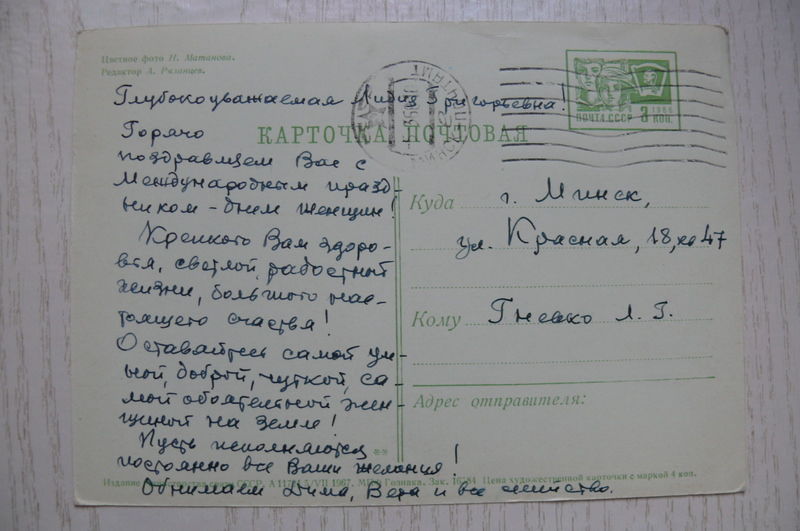 Цветное фото Н. Матанова.
Редактор А. Рязанцев.
Глубокоуважаемая Лидия Григорьевна!
Горячо
КАРТОЧКА ПОЧТОВАЯ
поздравляем Вас с
Международным празд-
ником - днем женщин!
Крепкого Вам здоро-
вья, светлой, радостной
жизни, большого нас-
тоящего счастья!
Оставайтесь самой ум-
ной, доброй, чуткой, са-
мой обаятельной жен-
щиной на земле!
Пусть исполняются
постоянно все Ваши желания!
Обнимаем Дима, Вера и все семейство.
ПОЧТА СССР
1966
3 коп.
Куда г. Минск,
ул. Красная, 18, кв 47
Кому Гневко Л. Г.
Адрес отправителя:
Издание Министерства связи СССР. 5/VII 1967. МПФ Гознака. Зак. Цена художественной карточки с маркой 4 коп.